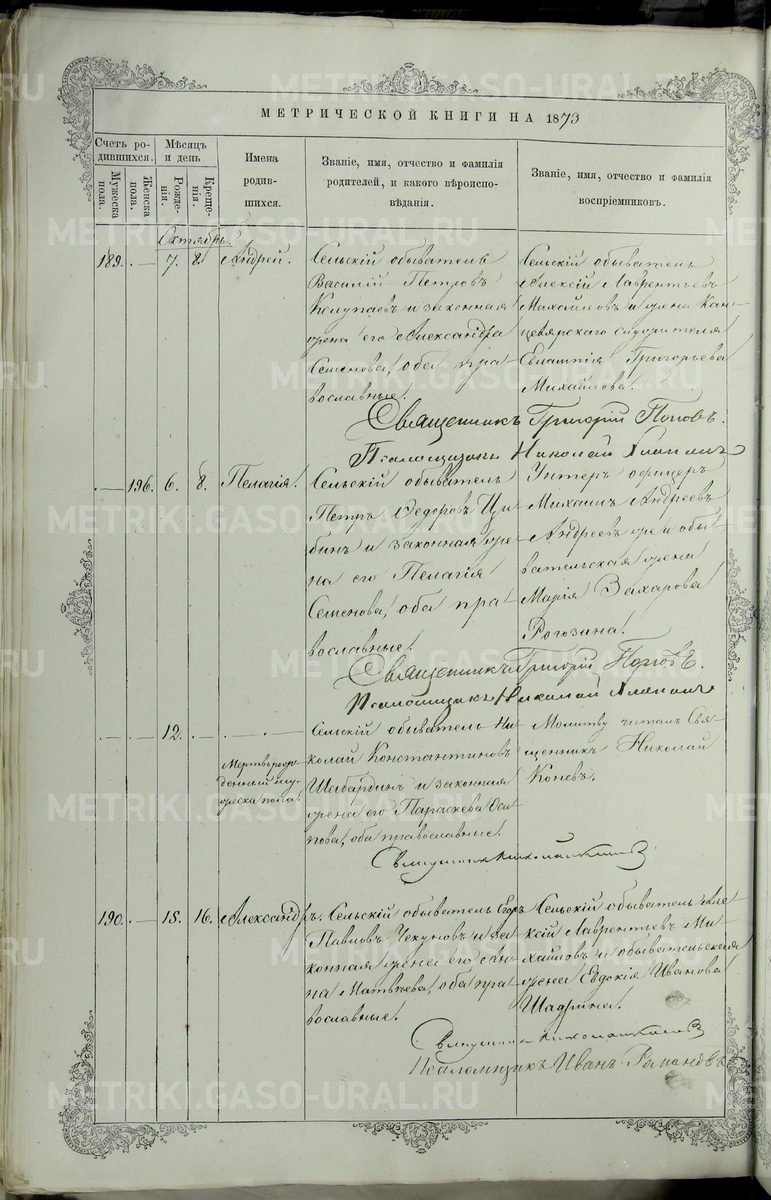 МЕТРИЧЕСКОЙ КНИГИ НА 1873
Счетъ ро-
дившихся.
Мужеска
пола.
Женска
пола.
Мѣсяцъ
и день
Рожде-
нія.
Креще-
нія.
Имена
родив-
шихся.
Званіе, имя, отчество и фамилія
родителей, и какого вѣроиспо-
вѣданія.
Званіе, имя, отчество и фамилія
воспріемниковъ.
Октябрь.
189. — 7. 8. Андрей.
Сельскій обыватель
Василій Петровъ
Колупаевъ и законная
жена его Александра
Семенова, оба пра-
вославные.
Сельскій обыватель
Алексій Лаврентьевъ
Михайловъ и жена Кан-
целярскаго служителя
Григорьева
Михайлова.
Священникъ Григорій Поповъ.
Псаломщикъ Николай
— 196. 6. 8. Пелагія.
Сельскій обыватель
Петръ Ѳедоровъ Ци-
бинъ и законная же-
на его Пелагія
Семенова, оба пра-
вославные.
Унтеръ офицеръ
Михаилъ Андреевъ
Андреевъ и обы-
вательская жена
Марія Захарова
Рогозина.
Священникъ Григорій Поповъ.
Псаломщикъ Николай
— — 12. — —
Мертворож-
денный му-
жеска пола.
Сельскій обыватель Ни-
колай Константиновъ
Шабардинъ и законная
жена его Параскева Оси-
пова, оба православные.
Молитву читалъ Свя-
щенникъ Николай
Коневъ.
Священникъ Николай Коневъ
190. — 15. 16. Александръ.
Сельскій обыватель Егоръ
Павловъ Чекуновъ и за-
конная жена его Ан-
на Матвѣева, оба пра-
вославные.
Сельскій обыватель Але-
ксій Лаврентьевъ Ми-
хайловъ и обывательская
жена Евдокія Иванова
Шадрина.
Священникъ Николай Коневъ
Псаломщикъ Иванъ
METRIKI.GASO-URAL.RU